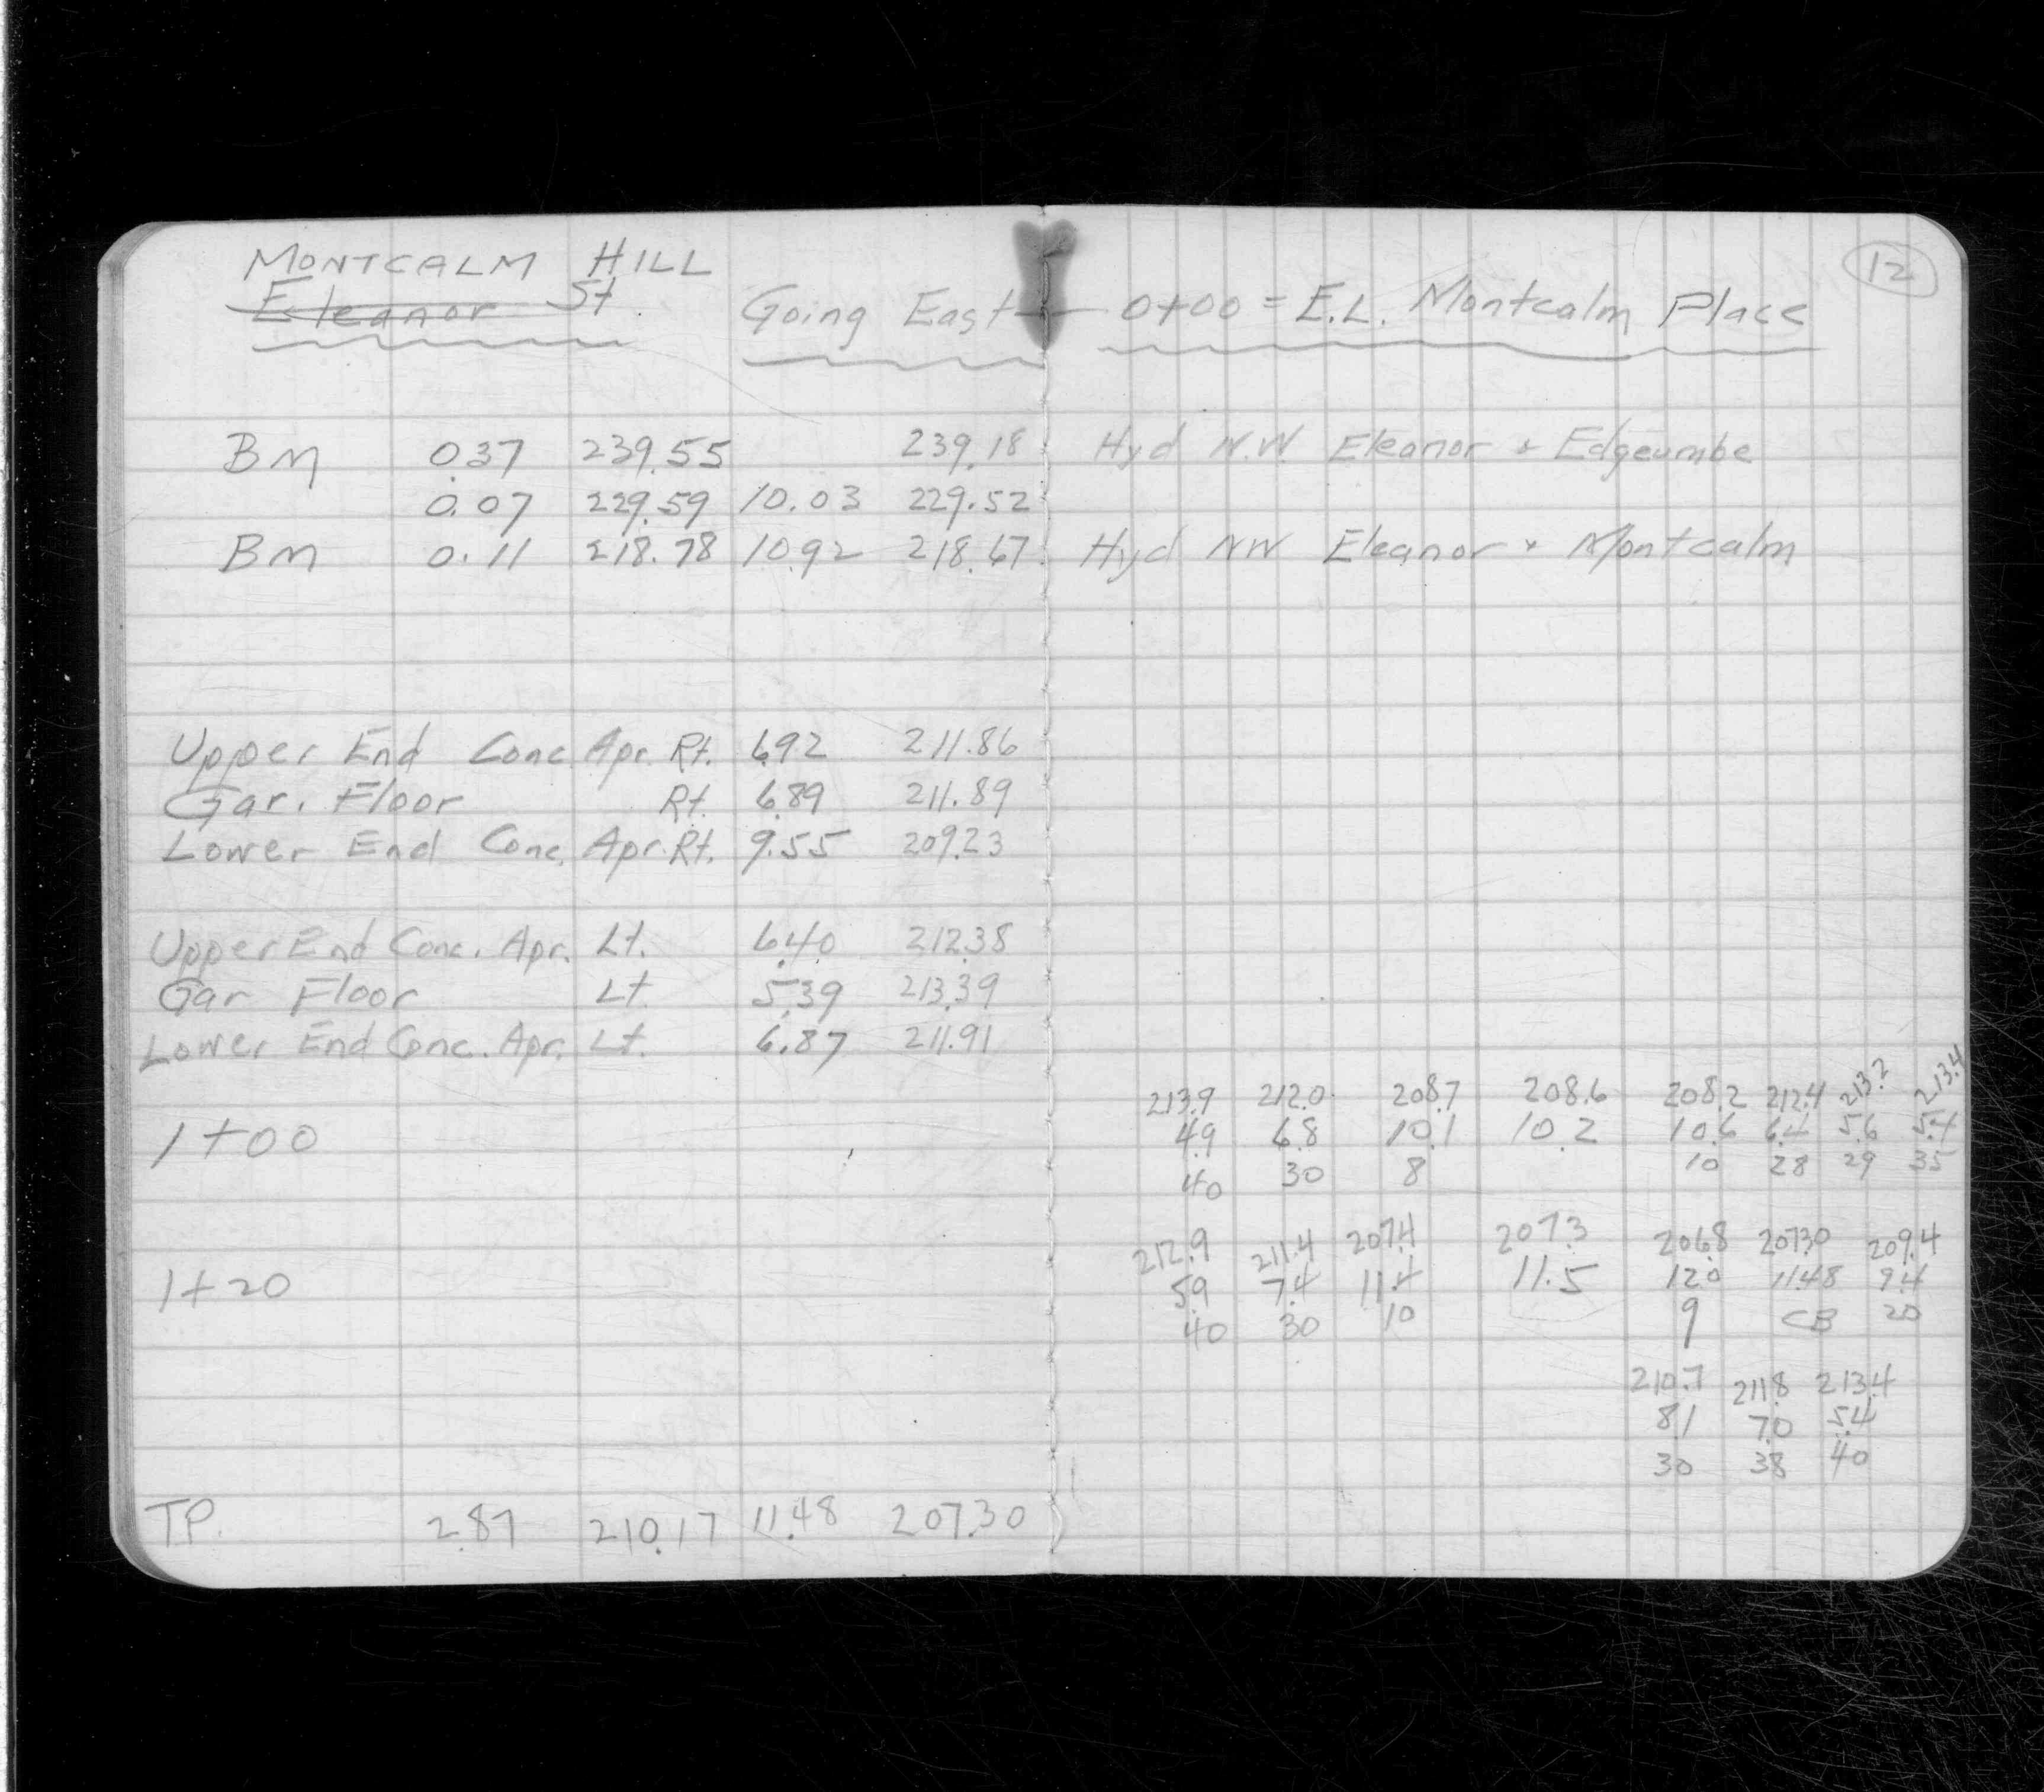 12
MONTCALM HILL
Eleanor St. Going East — 0+00 = E.L. Montcalm Place
BM 0.37 239.55 239.18 Hyd N.W. Eleanor + Edgcumbe
0.07 229.59 10.03 229.52
BM 0.11 218.78 10.92 218.67 Hyd NW Eleanor + Montcalm
Upper End Conc. Apr. Rt. 6.92 211.86
Gar. Floor Rt. 6.89 211.89
Lower End Conc. Apr. Rt. 9.55 209.23
Upper End Conc. Apr. Lt. 6.40 212.38
Gar Floor Lt. 5.39 213.39
Lower End Conc. Apr. Lt. 6.87 211.91
213.9 212.0 208.7 208.6 208.2 212.4 213.2 213.4
1+00 4.9 6.8 10.1 10.2 10.6 6.4 5.6 5.4
40 30 8 10 28 29 35
212.9 211.4 207.4 207.3 206.8 207.30 209.4
1+20 5.9 7.4 11.4 11.5 12.0 11.48 9.4
40 30 10 9 CB 20
210.7 211.8 213.4
8.1 7.0 5.4
30 38 40
TP. 2.87 210.17 11.48 207.30